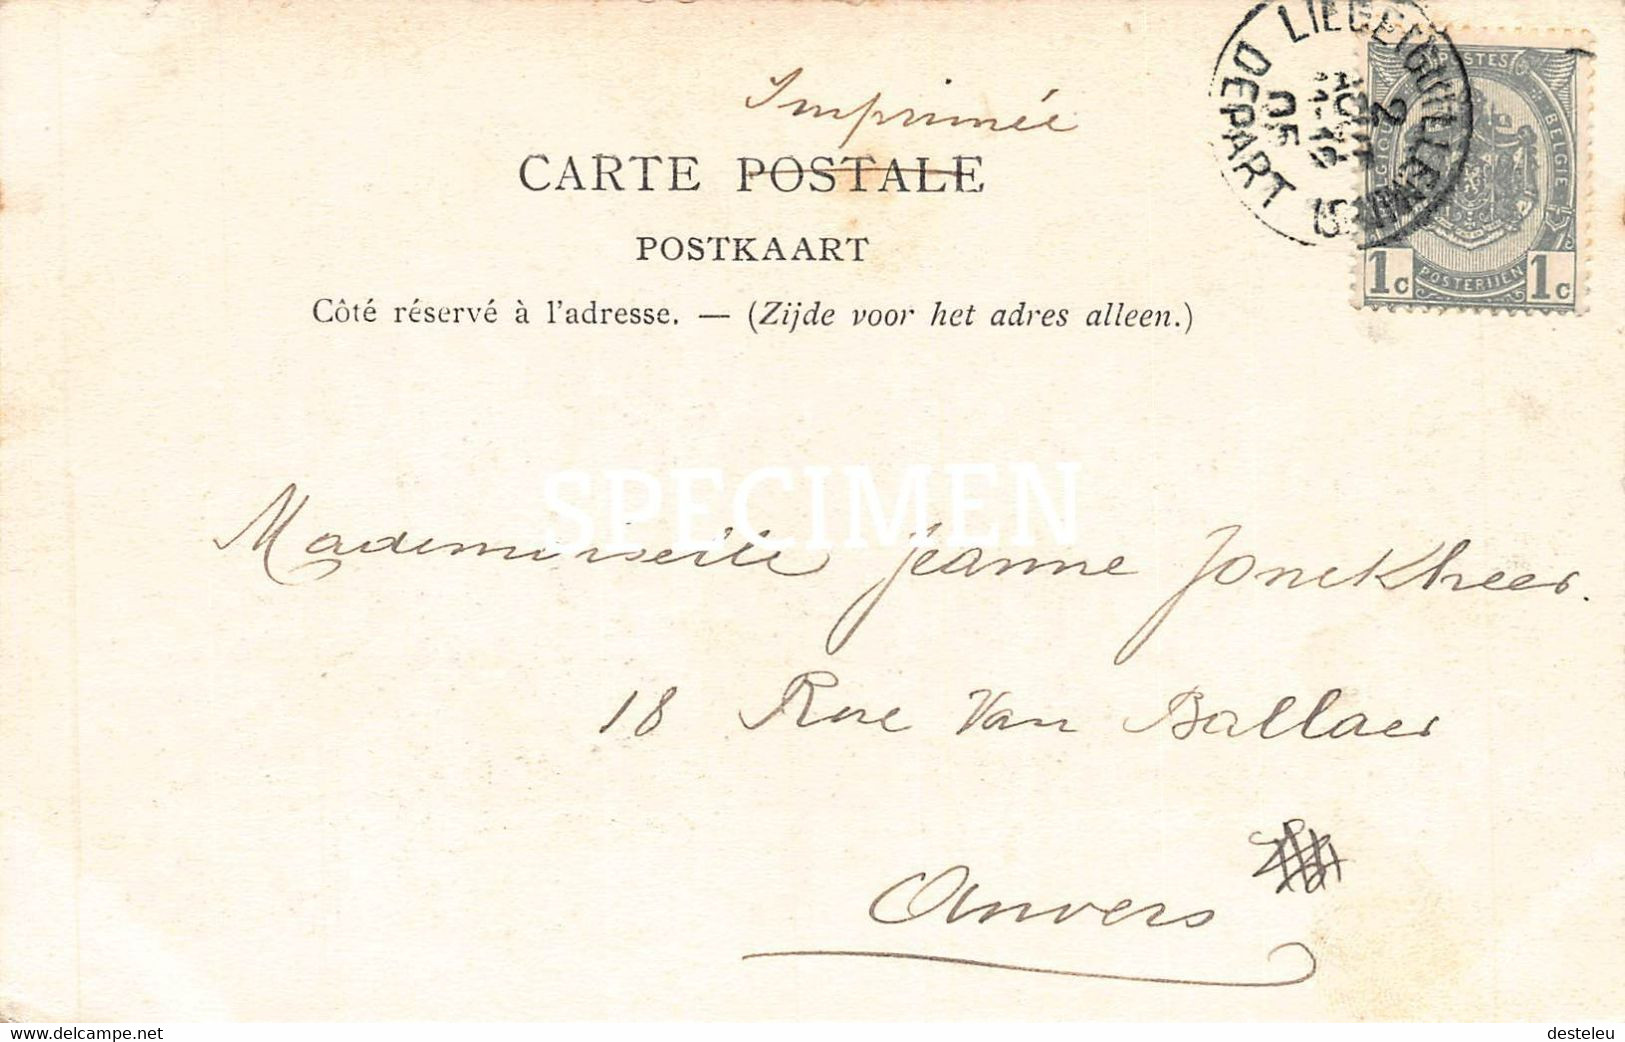 Imprimée
CARTE POSTALE
POSTKAART
Côté réservé à l'adresse. — (Zijde voor het adres alleen.)
LIEGE (GUILLEMINS)
DEPART
05
POSTES
BELGIE
POSTERIJEN
1c 1c
SPECIMEN
Mademoiselle Jeanne Jonckheer.
18 Rue Van Ballaer
Anvers
www.delcampe.net
desteleu